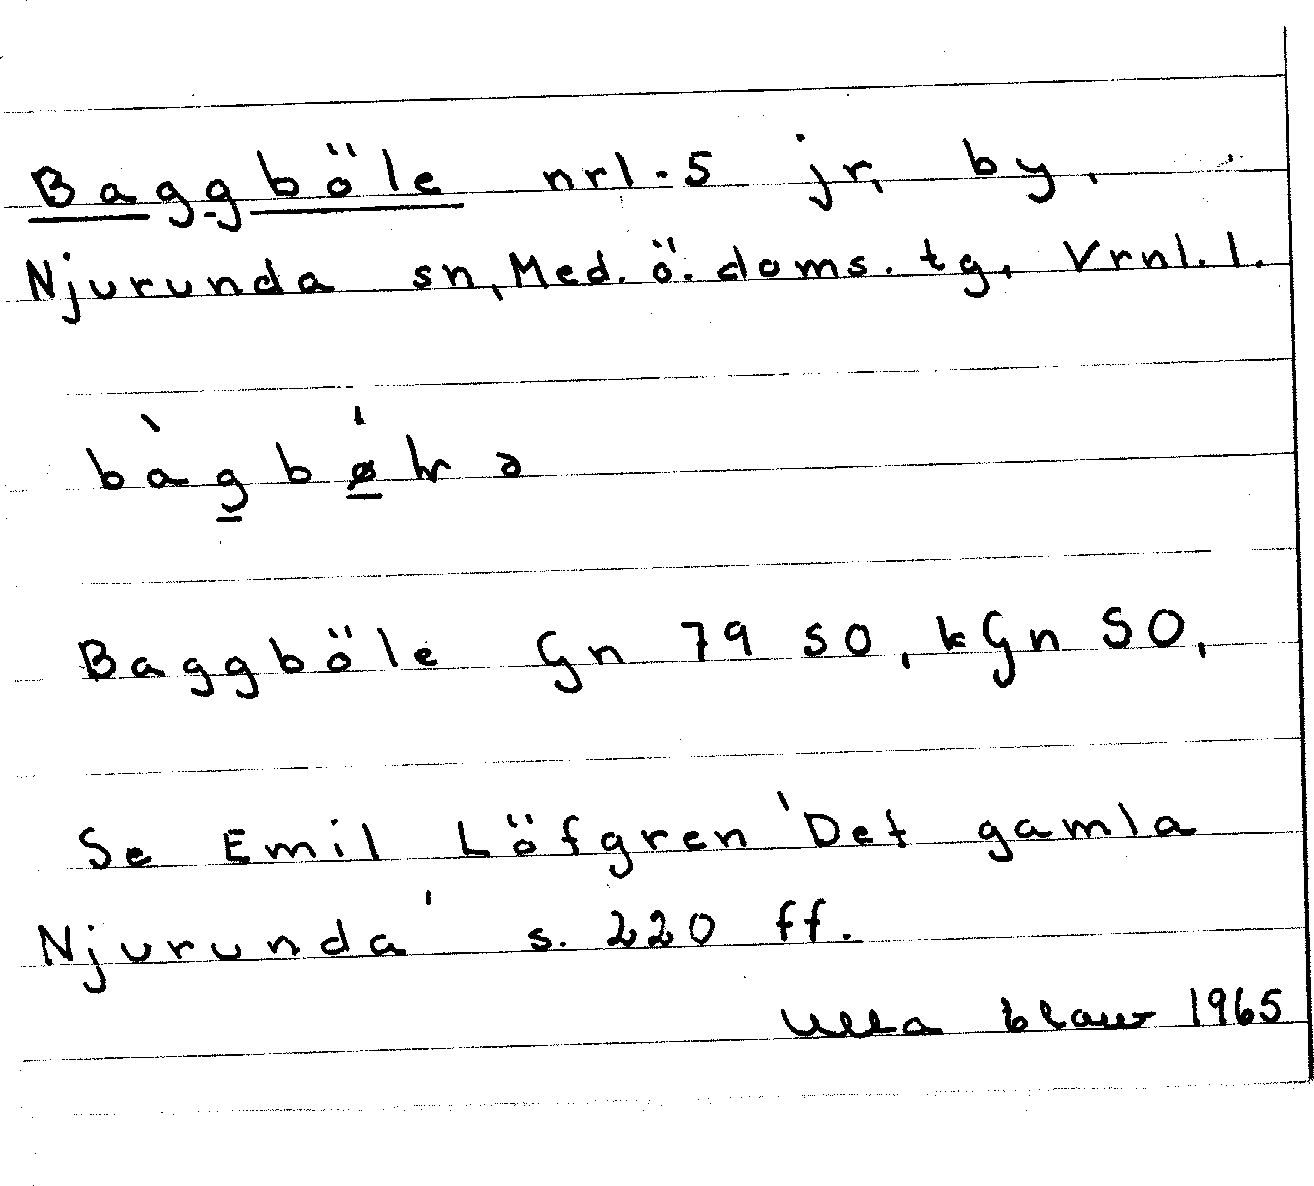 Baggböle nr 1-5 jr, by,
Njurunda sn, Med. ö. doms. tg, Vrnl. l.
Baggböle Gn 79 SO, kGn SO,
Se Emil Löfgren 'Det gamla
Njurunda' s. 220 ff.
Ulla 1965